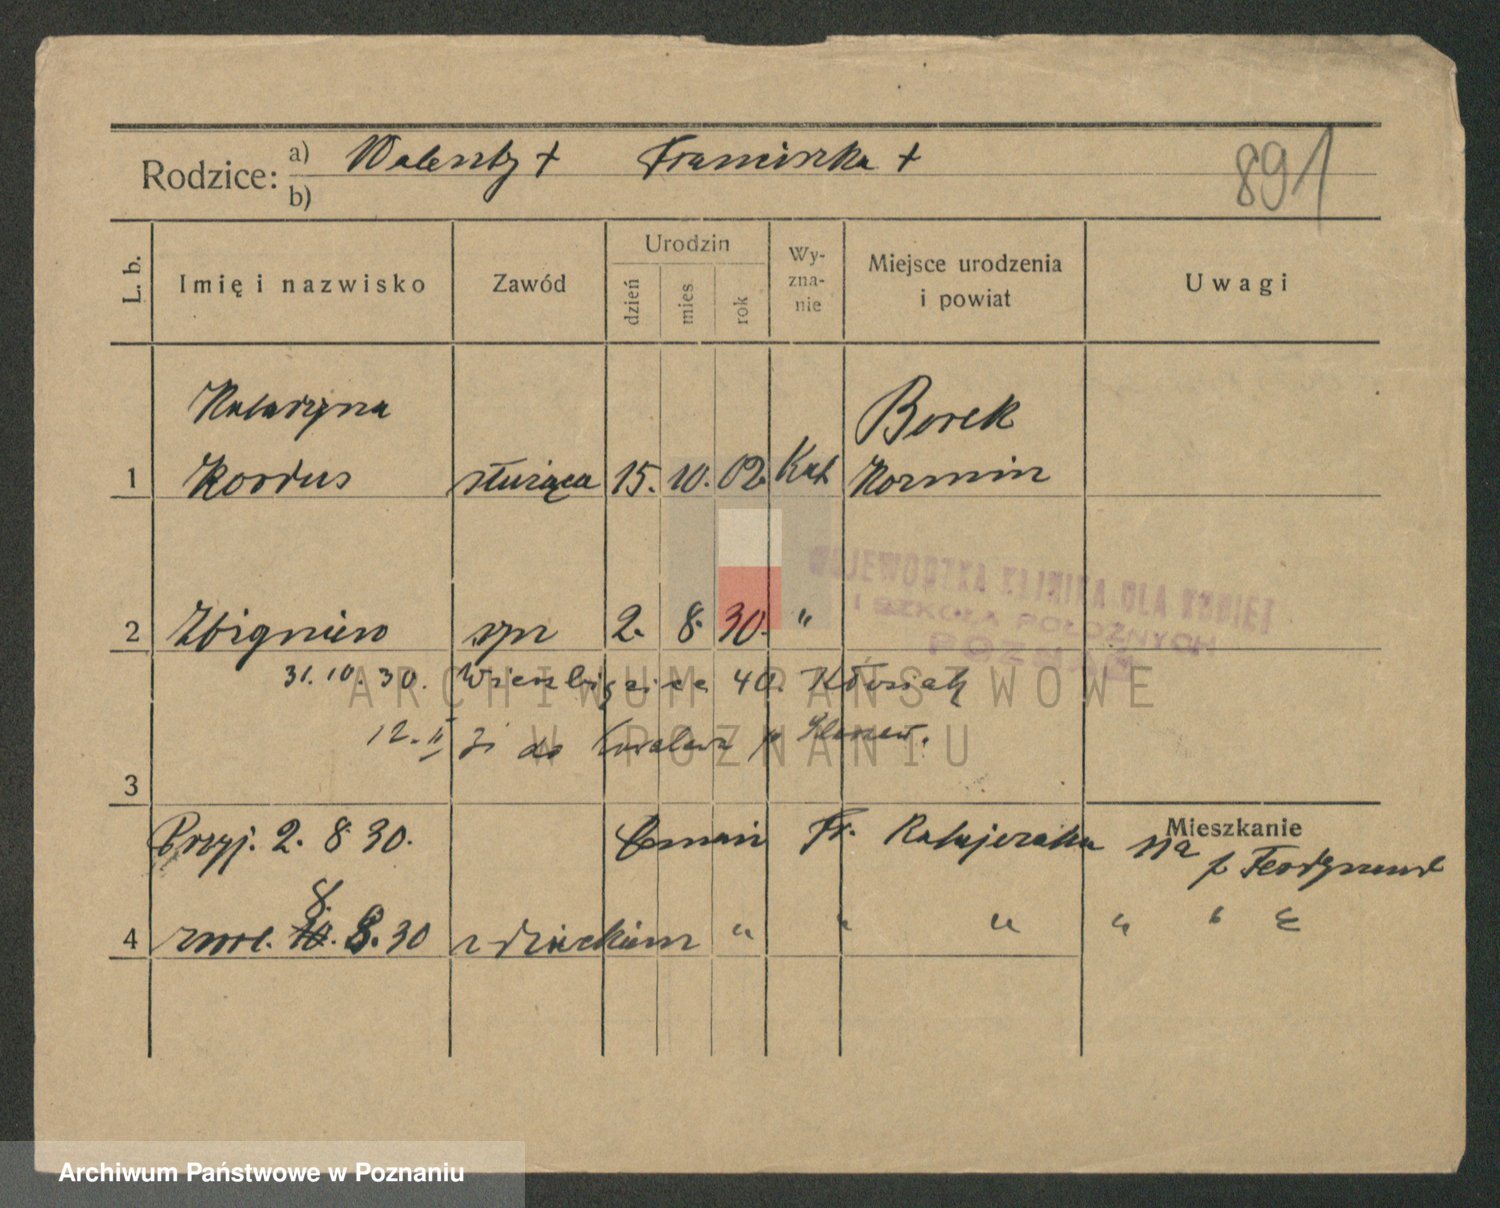 Rodzice: a) Walenty + Franciszka +
b)
891
L. b. Imię i nazwisko Zawód Urodzin dzień mies rok Wyznanie Miejsce urodzenia i powiat Uwagi
Katarzyna Borek
1 Kordus służąca 15. 10. 02. Kat Kozmin
WOJEWÓDZKA KLINIKA DLA KOBIET
I SZKOŁA POŁOŻNYCH
POZNAŃ
2 Zbigniew syn 2. 8. 30. "
31. 10. 30. Wierzbięcice 40.
12. II
3
Mieszkanie
Przyj. 2. 8. 30. Fr. Ratajczaka 11a
8.
4 10. 8. 30 z dzieckiem " " " " "
ARCHIWUM PAŃSTWOWE
W POZNANIU
Archiwum Państwowe w Poznaniu